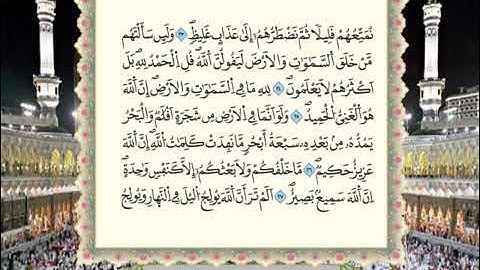 نُمَتِّعُهُمْ قَلِيلًا ثُمَّ نَضْطَرُّهُمْ إِلَىٰ عَذَابٍ غَلِيظٍ ٢٣ وَلَئِن سَأَلْتَهُم
مَّنْ خَلَقَ السَّمَٰوَٰتِ وَالَارْضَ لَيَقُولُنَّ اَللَّهُ قُلِ الْحَمْدُ لِلهِ بَلَ
اَكْثَرُهُمْ لَا يَعْلَمُونَ ٢٤ لِلهِ مَا فِي السَّمَٰوَٰتِ وَالَارْضِ إِنَّ اَللَّهَ
هُوَ الْغَنِيُّ الْحَمِيدُ ٢٥ وَلَوَ اَنَّمَا فِي الَارْضِ مِن شَجَرَةٍ اَقْلَٰمٌ وَالْبَحْرُ
يَمُدُّهُ مِنۢ بَعْدِهِ سَبْعَةُ أَبْحُرٍ مَّا نَفِدَتْ كَلِمَٰتُ اللَّهِ إِنَّ اَللَّهَ
عَزِيزٌ حَكِيمٌ ٢٦ مَّا خَلْقُكُمْ وَلَا بَعْثُكُمُ إِلَّا كَنَفْسٍ وَٰحِدَةٍ
اِنَّ اَللَّهَ سَمِيعٌۢ بَصِيرٌ ٢٧ اَلَمْ تَرَ أَنَّ اَللَّهَ يُولِجُ اُلَّيْلَ فِي النَّهَارِ وَيُولِجُ